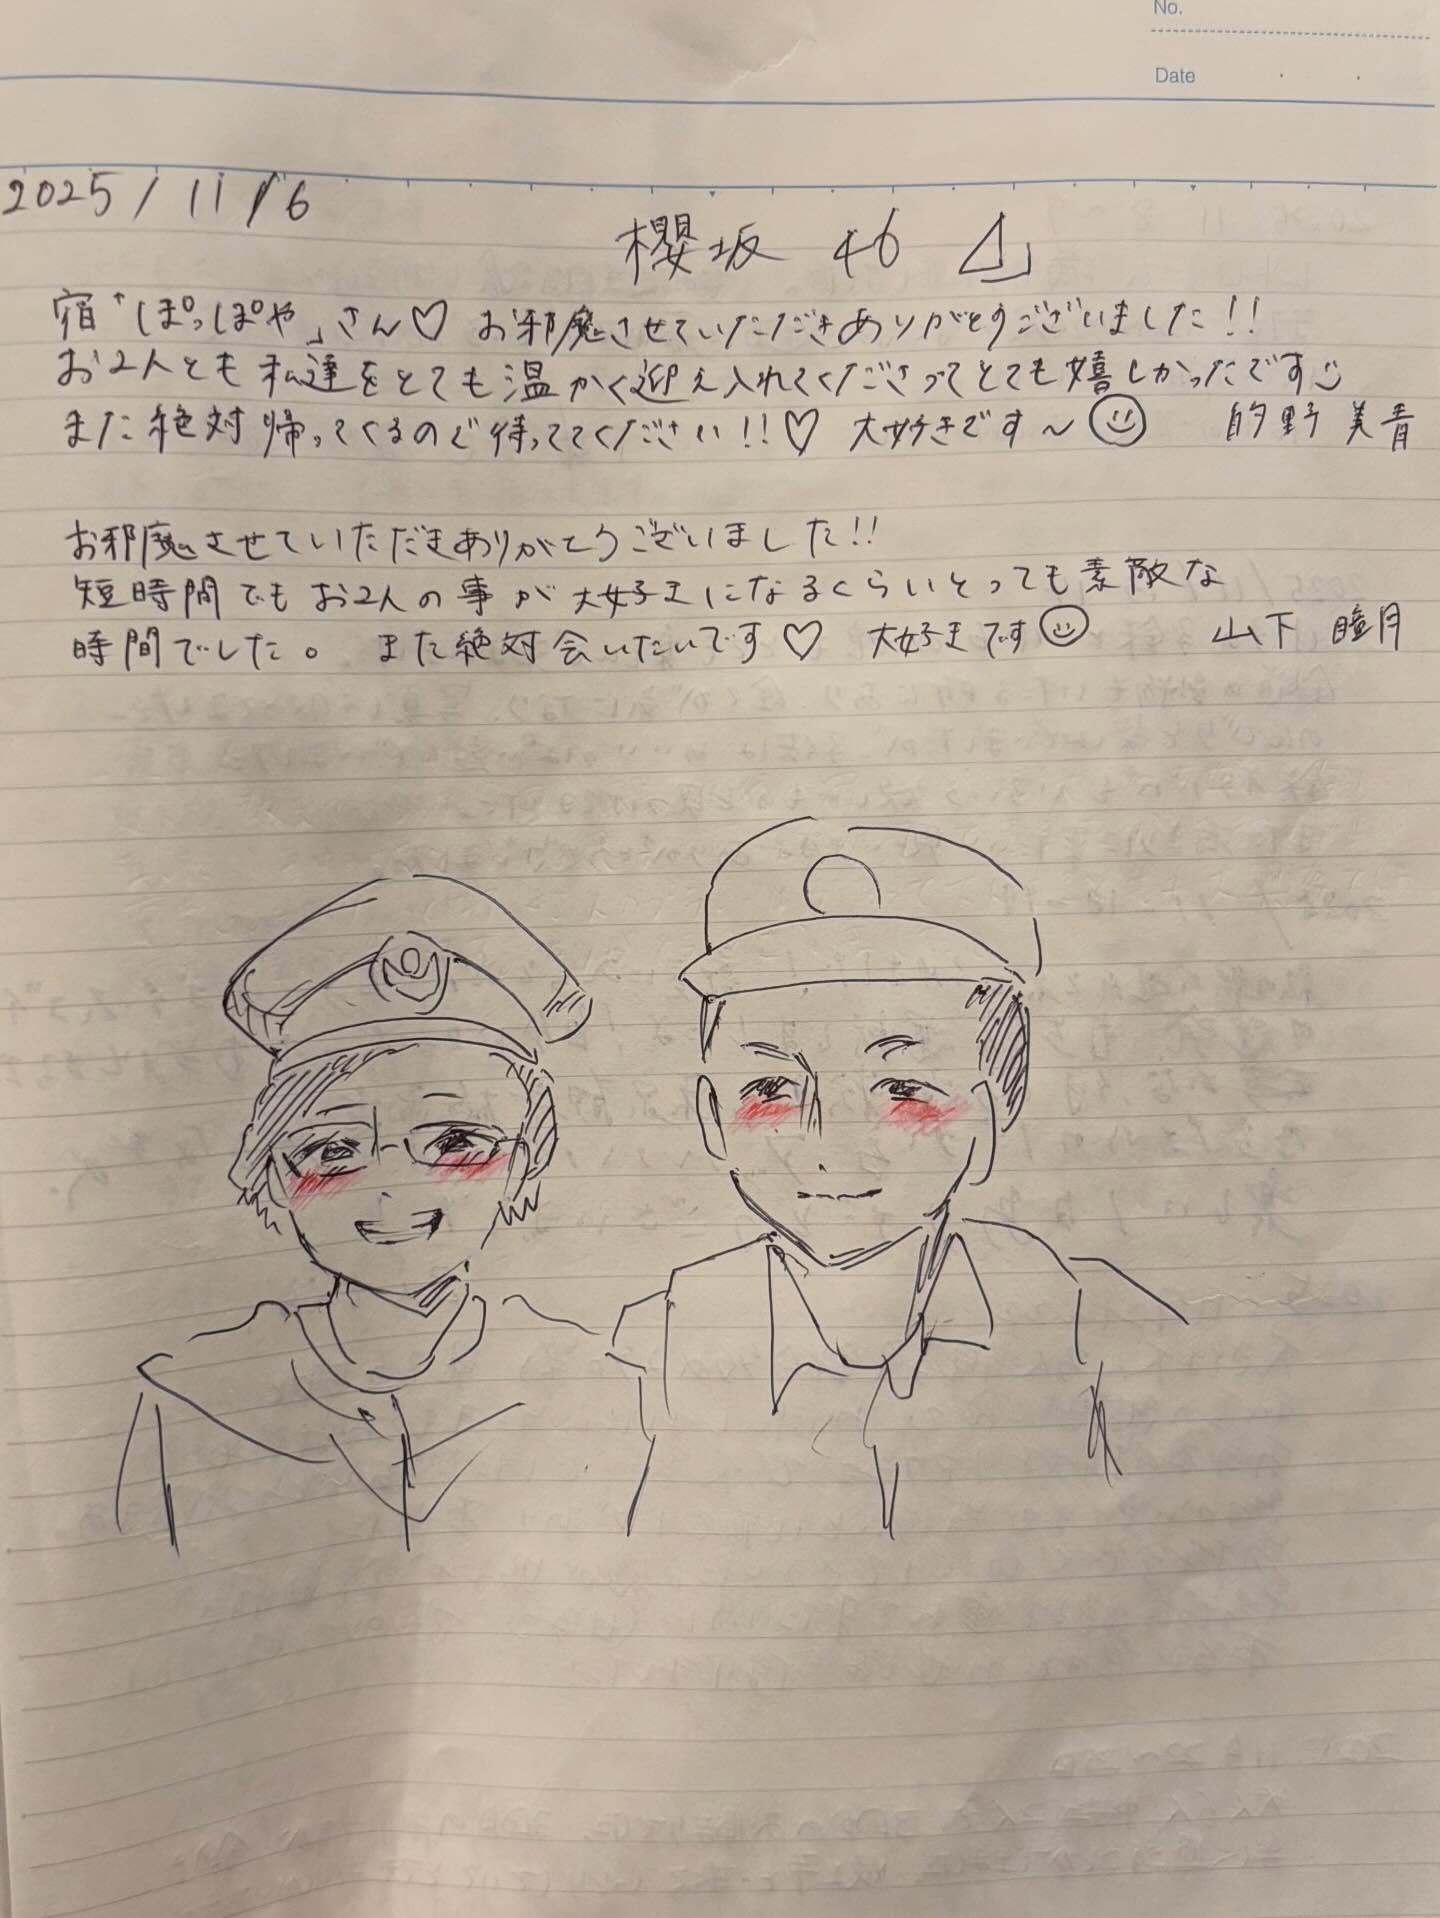 No.
Date
2025/11/6
櫻坂46
宿「ぽっぽや」さん♡ お邪魔させていただきありがとうございました!!
お2人とも私達をとても温かく迎え入れてくださってとても嬉しかったです
また絶対帰ってくるので待っててください!!♡ 大好きです〜 的野美青
お邪魔させていただきありがとうございました!!
短時間でもお2人の事が大好きになるくらいとっても素敵な
時間でした。 また絶対会いたいです♡ 大好きです 山下瞳月